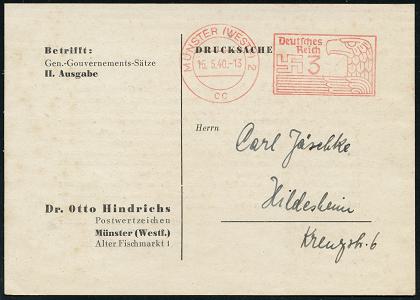 Betrifft:
Gen.-Gouvernements-Sätze
II. Ausgabe
DRUCKSACHE
MÜNSTER (WESTF.) 2
15.5.40.-13
cc
Deutsches
Reich
3
Herrn
Carl Jäschke
Hildesheim
Kreuzstr. 6
Dr. Otto Hindrichs
Postwertzeichen
Münster (Westf.)
Alter Fischmarkt 1